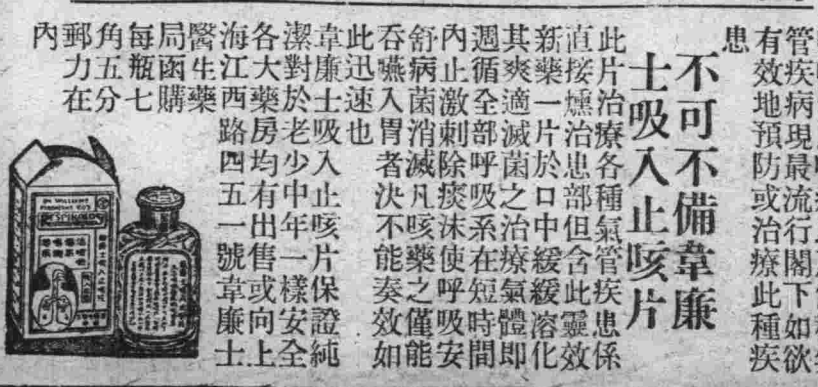 管疾病現最流行閣下如欲
有效地預防或治療此種疾
患
不可不備韋廉
士吸入止咳片
此片治療各種氣管疾患係
直接燻治患部但含此靈效
新藥一片於口中緩緩溶化
其爽適滅菌之治療氣體即
週循全部呼吸系在短時間
內止激刺除痰沫使呼吸安
舒病菌消滅凡咳藥之僅能
吞嚥入胃者決不能奏效如
此迅速也
韋廉士吸入止咳片保證純
潔對於老少中年一樣安全
各大藥房均有出售或向上
海江西路四五一號韋廉士
醫生藥
局函購
每瓶七
角五分
郵力在
內
DR WILLIAMS